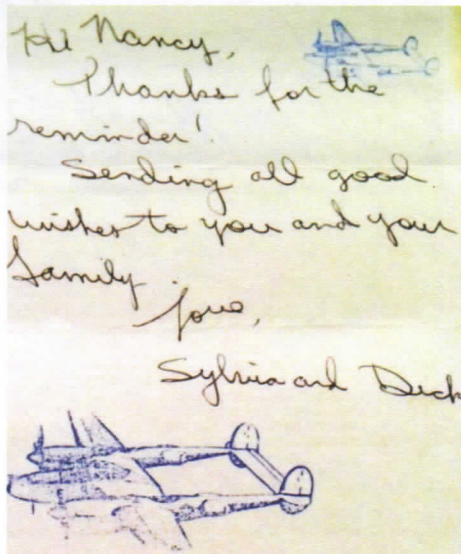 Hi Nancy,
Thanks for the
reminder!
Sending all good
wishes to you and your
family.
Love,
Sylvia and Dick